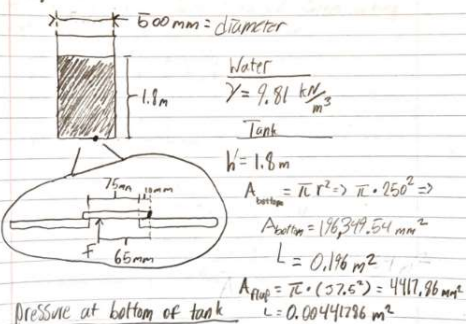 500mm = diameter
Water
γ = 9.81 kN/m³
1.8m
Tank
h = 1.8m
75mm
10mm
A bottom = π r² => π · 250² =>
A bottom = 196,349.54 mm²
F
65mm
L = 0.196 m²
A flap = π · (37.5²) = 4417.86 mm²
L = 0.00441786 m²
Pressure at bottom of tank